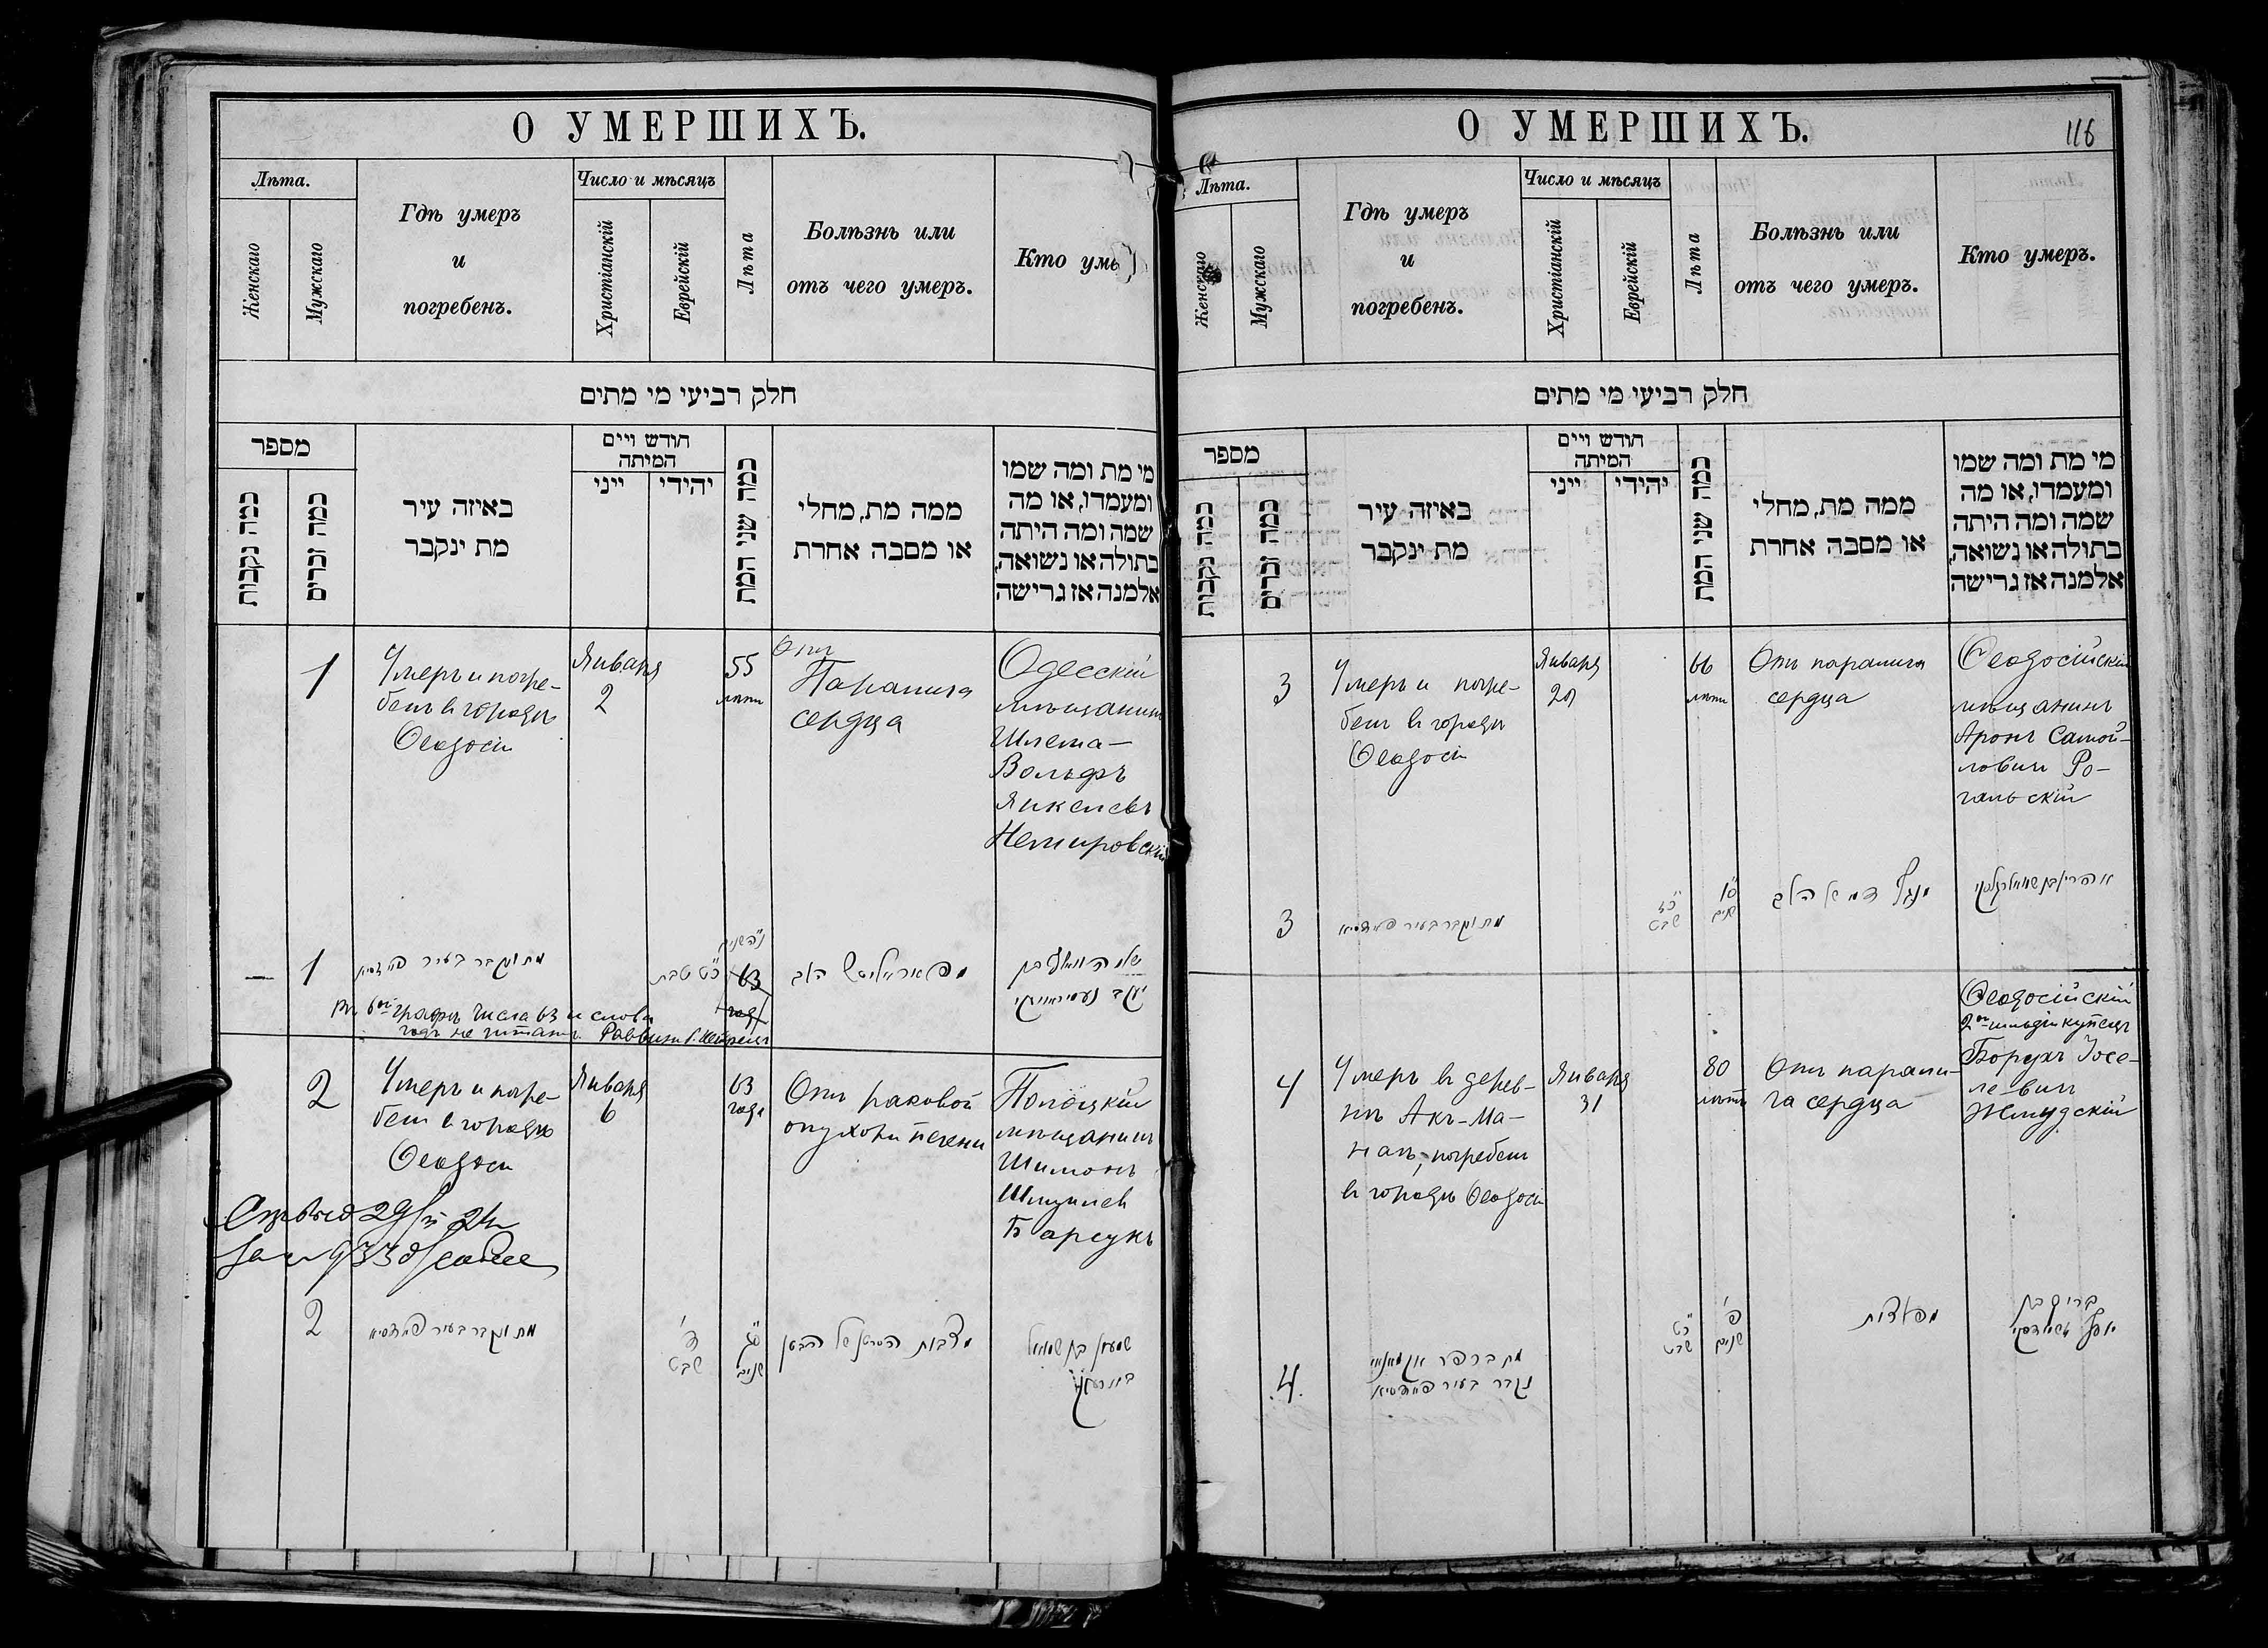 О УМЕРШИХЪ.
Лѣта.
Женскаго
Мужскаго
Гдѣ умеръ
и
погребенъ.
Число и мѣсяцъ
Христіанскій
Еврейскій
Лѣта
Болѣзнь или
отъ чего умеръ.
Кто уме
חלק רביעי מי מתים
מספר
כמה נקבות
כמה זכרים
באיזה עיר
מת ינקבר
חודש ויים
המיתה
ייני
יהידי
כמה שני המת
ממה מת, מחלי
או מסבה אחרת
מי מת ומה שמו
ומעמדו, או מה
שמה ומה היתה
בתולה או נשואה,
אלמנה אז גרישה
1
Умеръ и погре-
бенъ въ городѣ
Ѳеодосіи
Января
2
55
лѣтъ
Отъ
Паралича
сердца
Одесскій
мѣщанинъ
Шлема-
Вольфъ
Янкелевъ
Немировскій
—
1
מת ונקבר בעיר
כ"ט טבת
נ"ה שנים
63
год
יעקב
Въ 6ой графѣ числа 63 и слова
годъ не читать. Раввинъ
2
Умеръ и погре-
бенъ въ городѣ
Ѳеодосіи
Января
6
63
года
Отъ раковой
опухоли печени
Полоцкій
мѣщанинъ
Шимонъ
Шмулев
Барсукъ
29
933
2
מת ונקבר בעיר
ד'
שבט
ס"ג
שנים
הסרטן של הבטן
שמעון בן שמואל
О УМЕРШИХЪ.
116
Лѣта.
Женскаго
Мужскаго
Гдѣ умеръ
и
погребенъ.
Число и мѣсяцъ
Христіанскій
Еврейскій
Лѣта
Болѣзнь или
отъ чего умеръ.
Кто умеръ.
חלק רביעי מי מתים
מספר
כמה נקבות
כמה זכרים
באיזה עיר
מת ינקבר
חודש ויים
המיתה
ייני
יהידי
כמה שני המת
ממה מת, מחלי
או מסבה אחרת
מי מת ומה שמו
ומעמדו, או מה
שמה ומה היתה
בתולה או נשואה,
אלמנה אז גרישה
3
Умеръ и погре-
бенъ въ городѣ
Ѳеодосіи
Января
29
66
лѣтъ
Отъ паралича
сердца
Ѳеодосійскій
мѣщанинъ
Аронъ Самой-
ловичъ Ро-
гальскій
3
מת ונקבר בעיר
כ"ז
שבט
ס"ו
שנים
4
Умеръ въ дерев-
нѣ Акъ-Ма-
наѣ, погребенъ
въ городѣ Ѳеодосіи
Января
31
80
лѣтъ
Отъ парали-
ча сердца
Ѳеодосійскій
2ой гильдіи купецъ
Борухъ Іосе-
левичъ
Жмудскій
4.
מת בכפר
נקבר בעיר
כ"ט
שבט
פ'
שנים
ברוך בן
יוסף